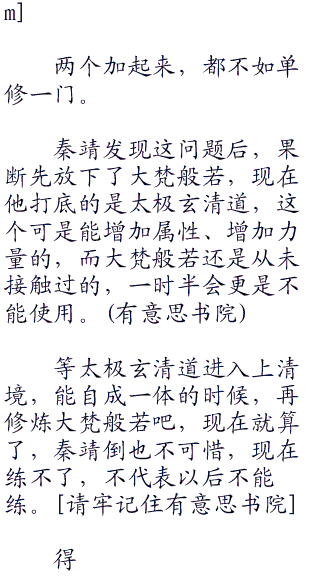 m]
两个加起来，都不如单
修一门。
秦靖发现这问题后，果
断先放下了大梵般若，现在
他打底的是太极玄清道，这
个可是能增加属性、增加力
量的，而大梵般若还是从未
接触过的，一时半会更是不
能使用。(有意思书院)
等太极玄清道进入上清
境，能自成一体的时候，再
修炼大梵般若吧，现在就算
了，秦靖倒也不可惜，现在
练不了，不代表以后不能
练。[请牢记住有意思书院]
得